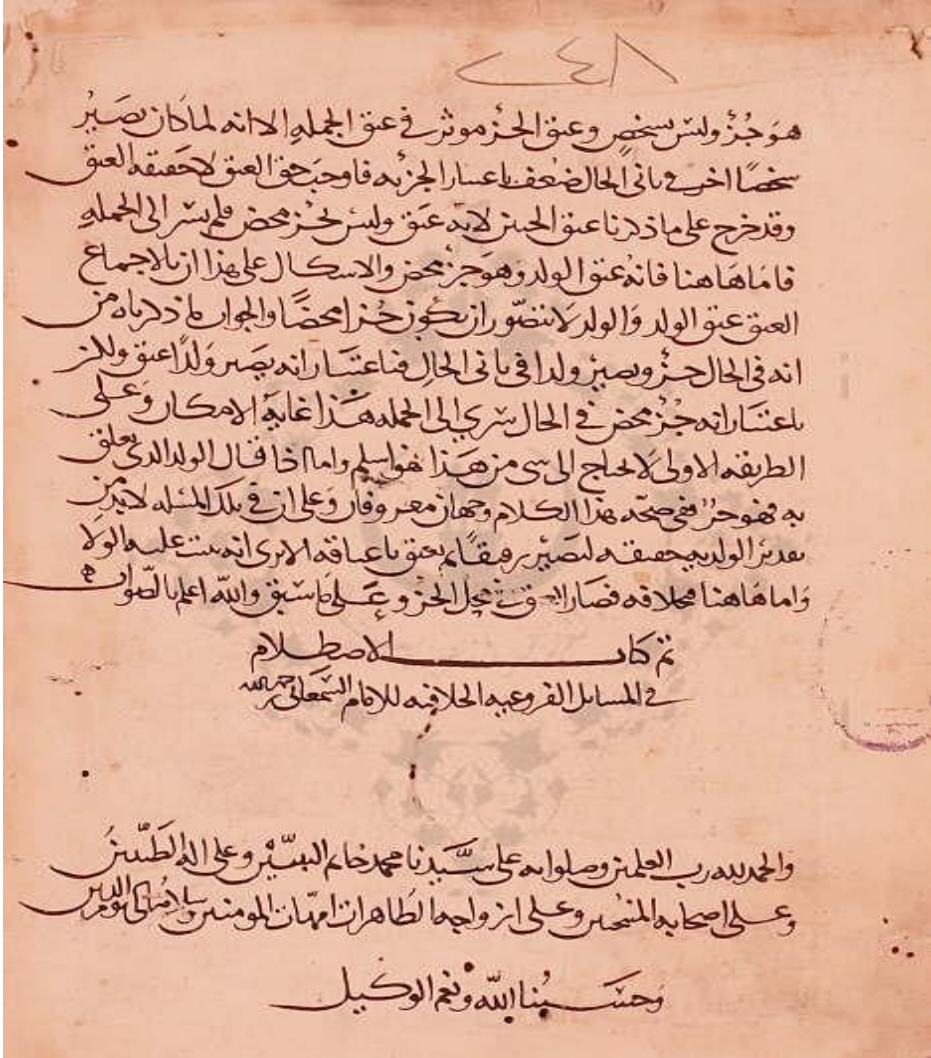 ٢٤٨
هو جزؤ وليس بشخص وعتق الجزؤ موثر في عتق الجمله الا انه لما كان يصير
شخصا اخر في ثاني الحال ضعف باعتبار الجزئيه فاوجب حق العتق لا حقيقه العتق
وقد خرج على ما ذكرنا عتق الجنين لانه عتق وليس بجزء محض فلم يسر الى الجمله
فاما هاهنا فانه عتق الولد وهو جزء محض والاشكال على هذا ان بالاجماع
العتق عتق الولد والولد لا يتصور ان يكون جزا محضا والجواب ما ذكرناه من
انه في الحال جزؤ ويصير ولدا في ثاني الحال فباعتبار انه يصير ولدا عتق
باعتبار انه جزء محض في الحال سرى الى الجمله هذا غاية الامكان وعلى
الطريقه الاولى لا نحتاج الى شى من هذا فهو اسلم واما اذا قال الولد الذي يعلق
به فهو حر ففي صحة هذا الكلام وجهان معروفان وعلى ان في تلك المسئله لا بد من
تقدير الولديه حقيقه ليصير رقيقا ثم يعتق باعتاقه الا يرى انه يثبت عليه الولا
واما هاهنا بخلافه فصار العتق في محل الجزؤ وعلى ما سبق والله اعلم بالصواب
تم كتاب الاصطلام
في المسايل الفروعيه الخلافيه للامام السمعاني رحمه الله
والحمد لله رب العلمين وصلواته على سيدنا محمد خاتم النبيين وعلى اله الطيبين
وعلى اصحابه المنتجبين وعلى ازواجه الطاهرات امهات المومنين وسلامه الى يوم الدين
وحسبنا الله ونعم الوكيل